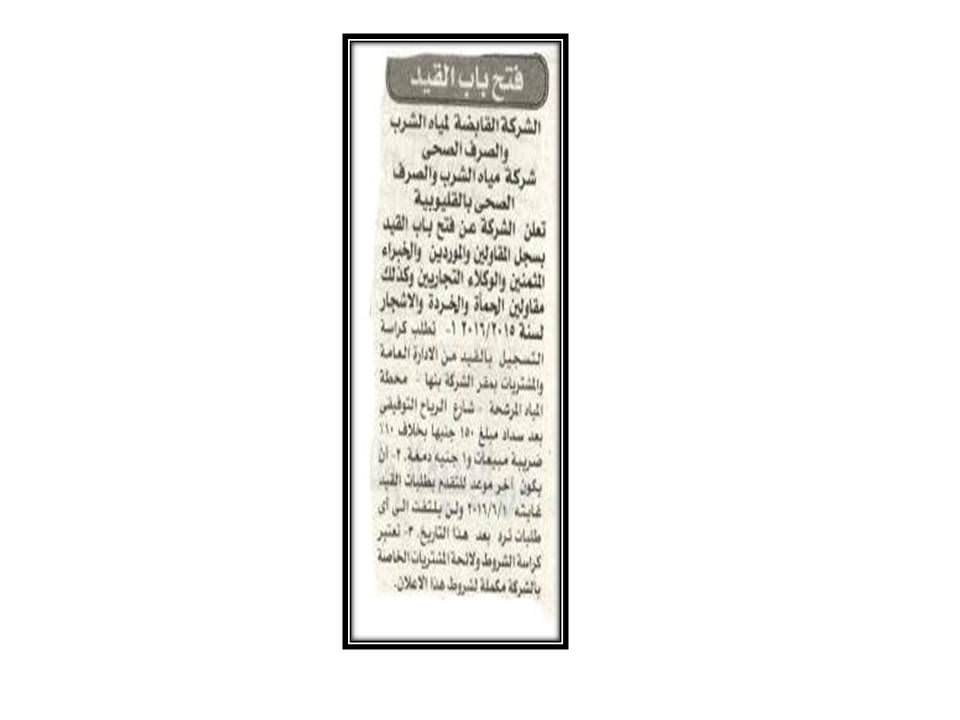 فتح باب القيد
الشركة القابضة لمياه الشرب
والصرف الصحى
شركة مياه الشرب والصرف
الصحى بالقليوبية
تعلن الشركة عن فتح باب القيد
بسجل المقاولين والموردين والخبراء
المثمنين والوكلاء التجاريين وكذلك
مقاولين الحمأة والخردة والاشجار
لسنة ٢٠١٦/٢٠١٥ ١- تطلب كراسة
التسجيل بالقيد من الادارة العامة
والمشتريات بمقر الشركة بنها - محطة
المياه المرشحة - شارع الرياح التوفيقى
بعد سداد مبلغ ١٥٠ جنيها بخلاف ١٠٪
ضريبة مبيعات و١ جنيه دمغة. ٢- أن
يكون أخر موعد للتقدم بطلبات القيد
غايته ٢٠١٦/٦/١ ولن يلتفت الى أى
طلبات ترد بعد هذا التاريخ. ٣- تعتبر
كراسة الشروط ولائحة المشتريات الخاصة
بالشركة مكملة لشروط هذا الاعلان.